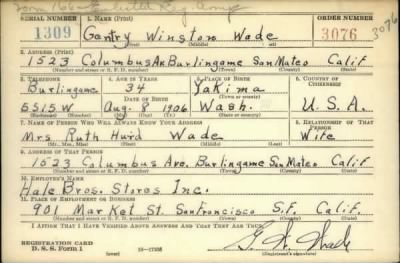 Form 166 - Enlisted Reg Army
SERIAL NUMBER 1. NAME (Print) ORDER NUMBER
1309 Gantry Winston Wade 3076 3076
2. ADDRESS (Print)
1523 Columbus Av. Burlingame San Mateo Calif
(Number and street or R. F. D. number) (Town) (County) (State)
3. TELEPHONE 4. AGE IN YEARS 5. PLACE OF BIRTH 6. COUNTRY OF CITIZENSHIP
Burlingame 34 Yakima
DATE OF BIRTH (Town or county)
5515W Aug. 8 1906 Wash. U.S.A.
(Exchange) (Number) (Mo.) (Day) (Yr.) (State or country)
7. NAME OF PERSON WHO WILL ALWAYS KNOW YOUR ADDRESS 8. RELATIONSHIP OF THAT PERSON
Mrs. Ruth Hurd Wade Wife
(Mr., Mrs., Miss) (First) (Middle) (Last)
9. ADDRESS OF THAT PERSON
1523 Columbus Ave. Burlingame San Mateo Calif.
(Number and street or R. F. D. number) (Town) (County) (State)
10. EMPLOYER'S NAME
Hale Bros. Stores Inc.
11. PLACE OF EMPLOYMENT OR BUSINESS
901 Market St. San Francisco S.F. Calif.
(Number and street or R. F. D. number) (Town) (County) (State)
I AFFIRM THAT I HAVE VERIFIED ABOVE ANSWERS AND THAT THEY ARE TRUE.
REGISTRATION CARD
D. S. S. FORM 1 G. W. Wade
(Registrant's signature)